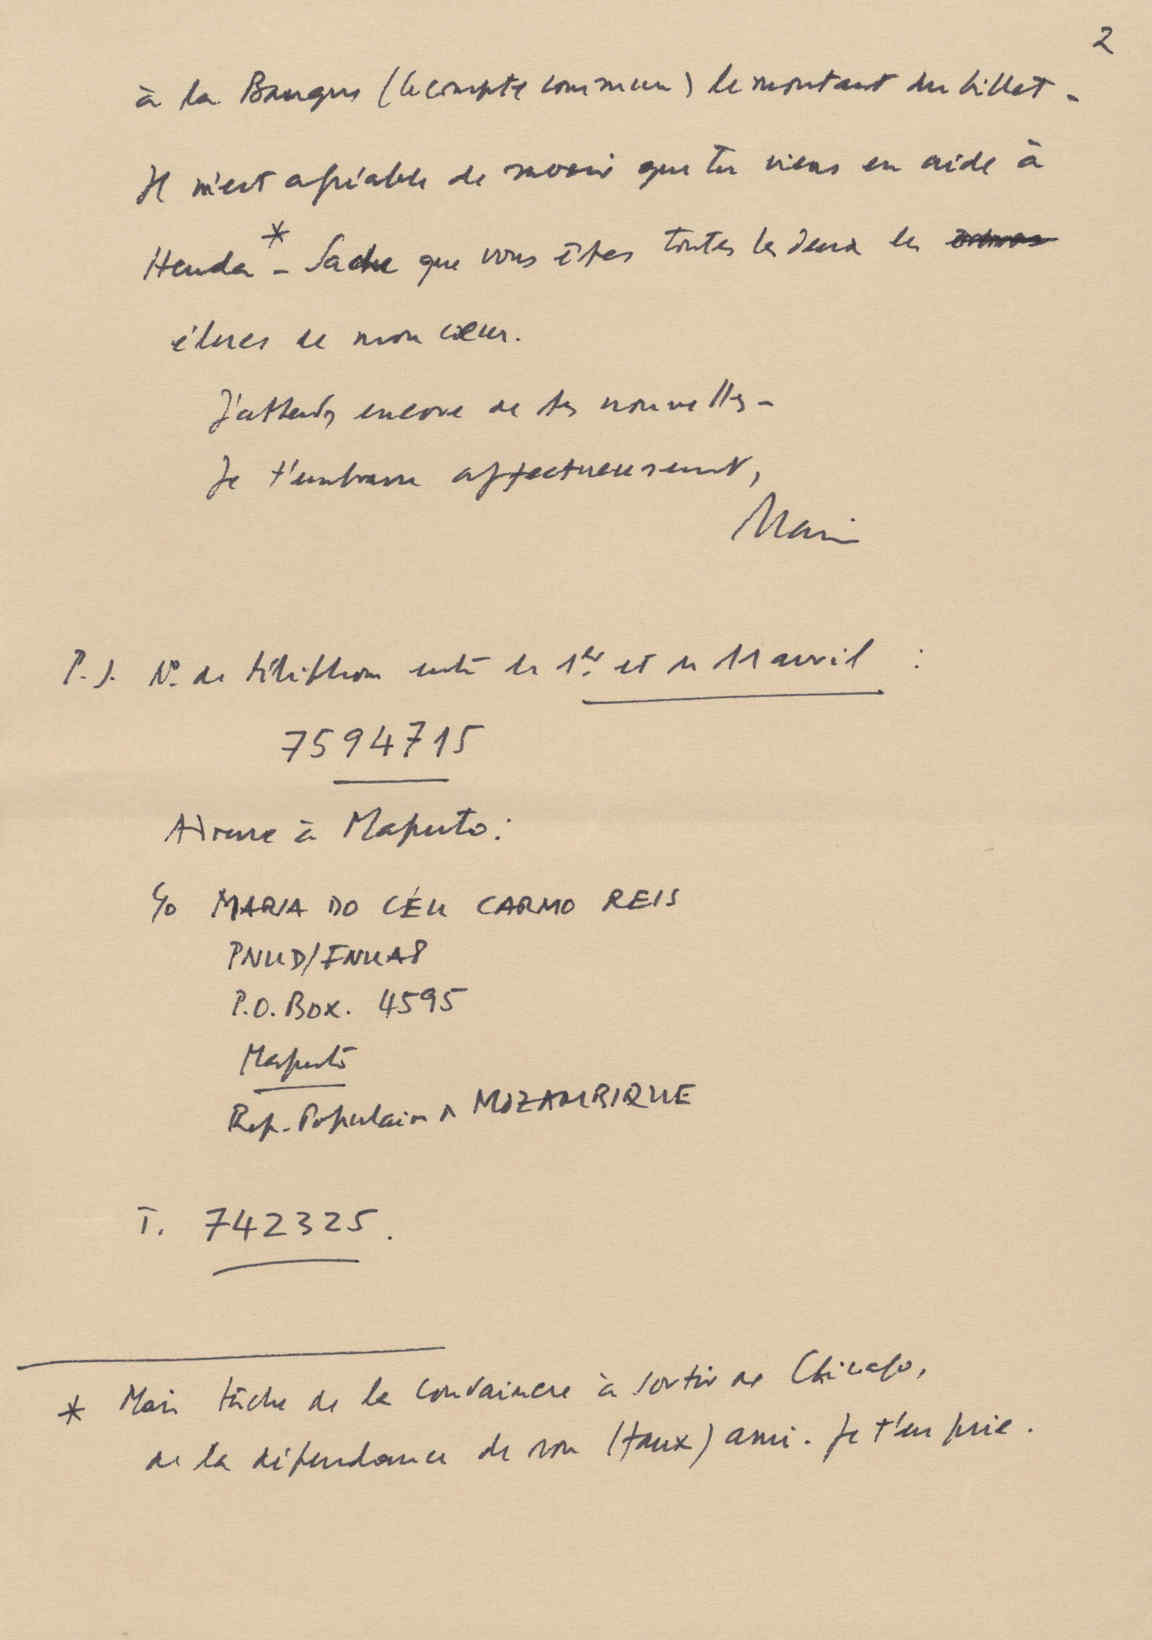 2
à la Banque (le compte commun) le montant du billet -
Il m'est agréable de savoir que tu viens en aide à
Henda * - Sache que vous êtes toutes les deux les
élues de mon cœur.
J'attends encore de tes nouvelles -
Je t'embrasse affectueusement,
P.S. Nº de téléphone entre le 1er et le 11 avril :
7594715
Adresse à Maputo :
c/o MARIA DO CÉU CARMO REIS
PNUD/FNUAP
P.O. Box. 4595
Maputo
Rep. Populaire de MOZAMBIQUE
T. 742325.
* Mais tâche de la convaincre à sortir de Chicago,
de la dépendance de son (faux) ami. Je t'en prie.